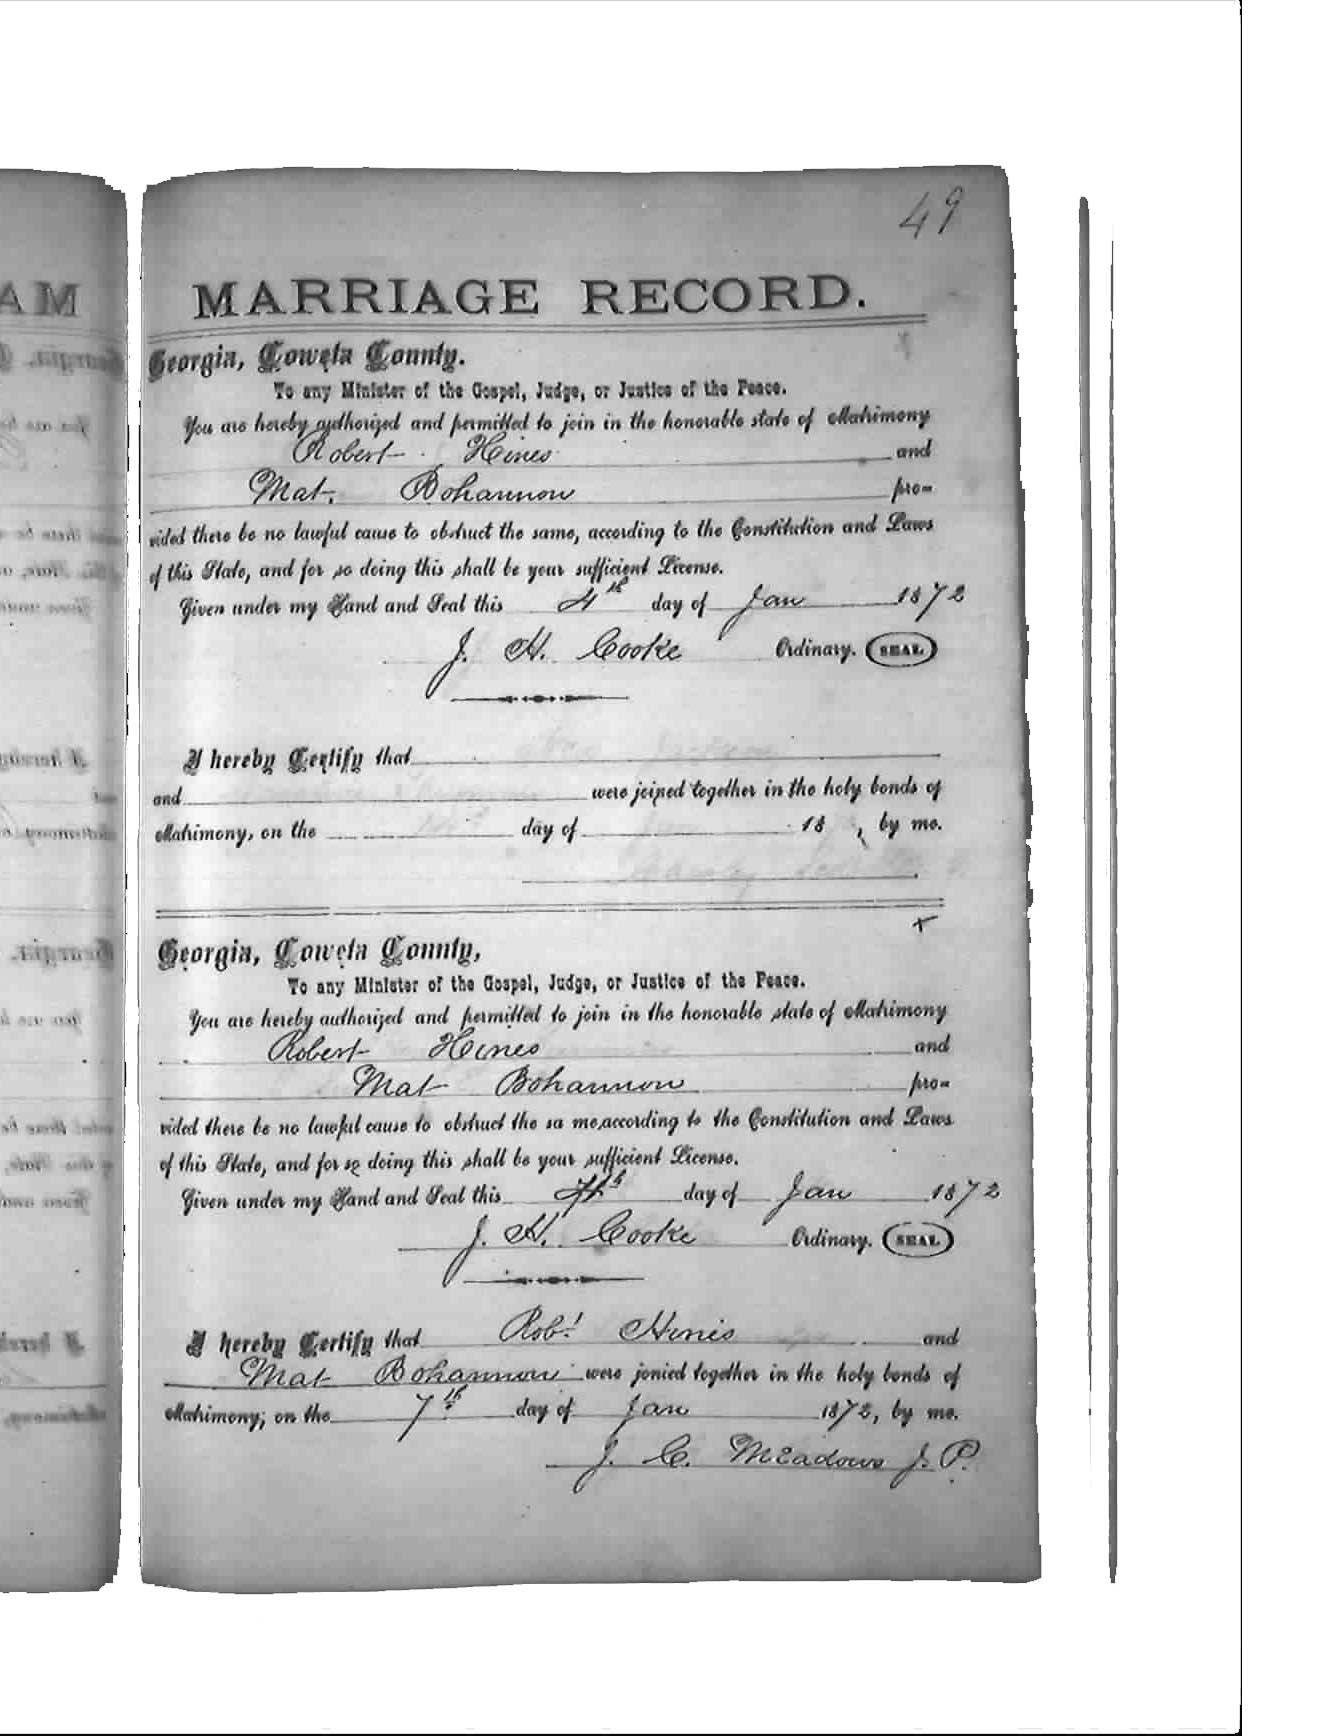 49
MARRIAGE RECORD.
Georgia, Coweta County.
To any Minister of the Gospel, Judge, or Justice of the Peace.
You are hereby authorized and permitted to join in the honorable state of Matrimony
Robert Hines and
Mat. Bohannon pro-
vided there be no lawful cause to obstruct the same, according to the Constitution and Laws
of this State, and for so doing this shall be your sufficient License.
Given under my Hand and Seal this 4th day of Jan 1872
J. H. Cooke Ordinary. SEAL
I hereby Certify that
and were joined together in the holy bonds of
Matrimony, on the day of 18 , by me.
x
Georgia, Coweta County,
To any Minister of the Gospel, Judge, or Justice of the Peace.
You are hereby authorized and permitted to join in the honorable state of Matrimony
Robert Hines and
Mat Bohannon pro-
vided there be no lawful cause to obstruct the sa me,according to the Constitution and Laws
of this State, and for so doing this shall be your sufficient License.
Given under my Hand and Seal this 4th day of Jan 1872
J. H. Cooke Ordinary. SEAL
I hereby Certify that Robt Hinis and
Mat Bohannon were jonied together in the holy bonds of
Matrimony; on the 7th day of Jan 1872, by me.
J. C. Meadows J. P.